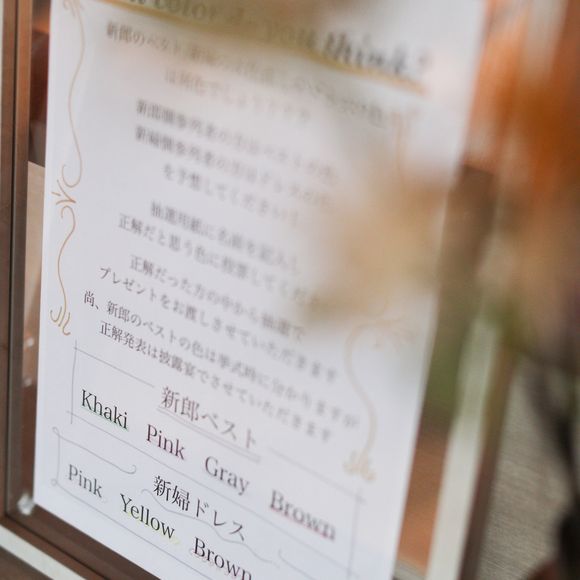 color do you think?
新郎のベスト、新婦の
は何色でしょう？？？
新郎側参列者の方はベストの色、
新婦側参列者の方はドレスの色
を予想してください！
抽選用紙に名前を記入し
正解だと思う色に投票してくだ
正解だった方の中から抽選で
プレゼントをお渡しさせていただきます
尚、新郎のベストの色は挙式時に分かりますが
正解発表は披露宴でさせていただきます
新郎ベスト
Khaki Pink Gray Brown
新婦ドレス
Pink Yellow Brown